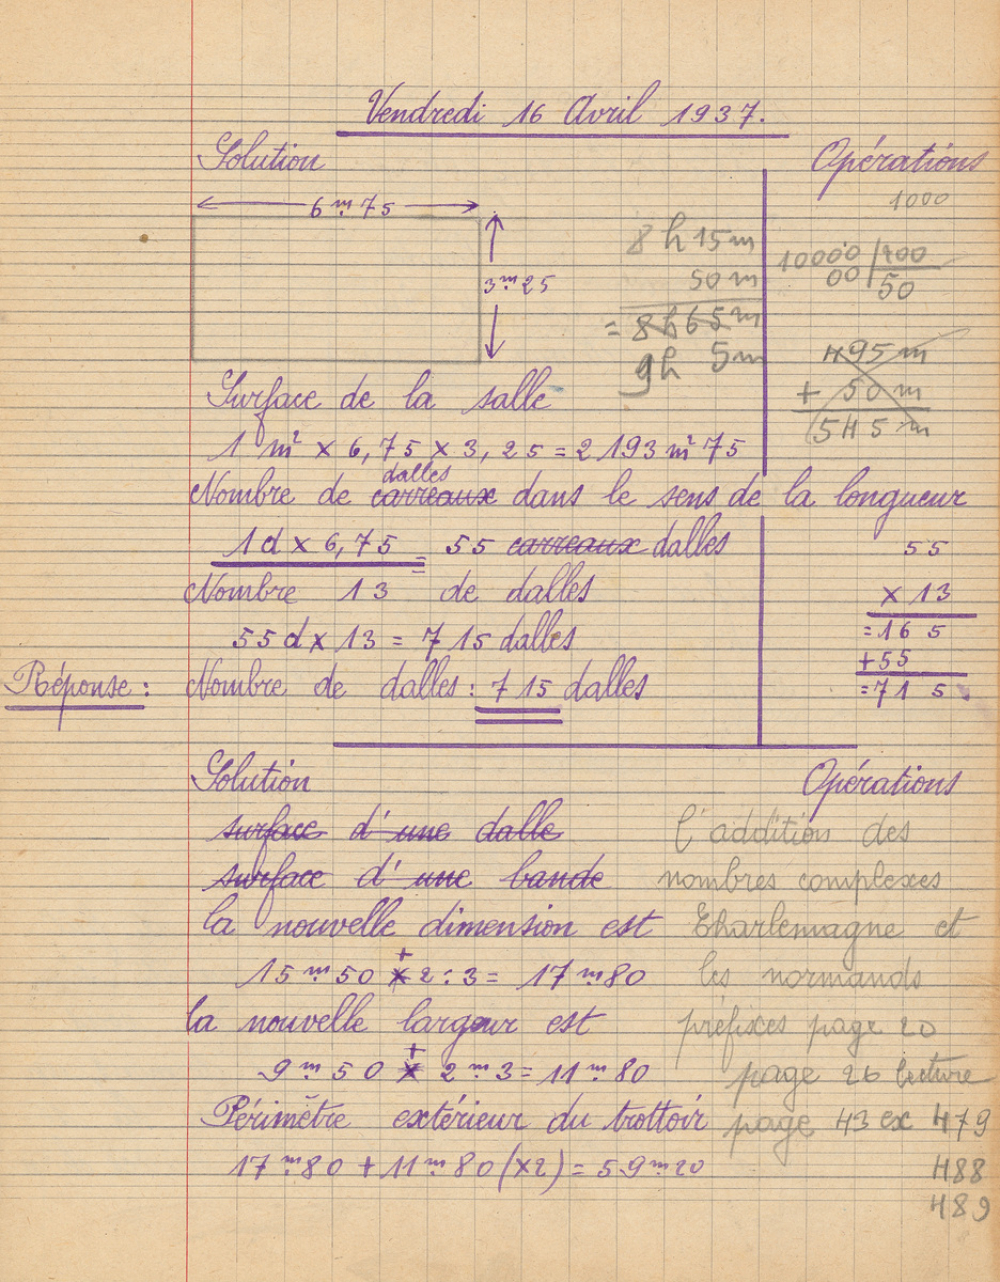 Vendredi 16 Avril 1937.
Solution
Opérations
6m75
3m25
8h15m
50m
= 8h65m
9h 5m
1000
10000 | 200
00 | 50
495m
+ 50m
545m
Surface de la salle
1 m² × 6,75 × 3,25 = 2193m²75
dalles
Nombre de carreaux dans le sens de la longueur
1d × 6,75 = 55 carreaux dalles
Nombre 13 de dalles
55d × 13 = 715 dalles
Réponse : Nombre de dalles : 715 dalles
55
× 13
=165
+55
=715
Solution
Opérations
surface d'une dalle
surface d'une bande
la nouvelle dimension est
+
15m50 × 2:3 = 17m80
la nouvelle largeur est
+
9m50 × 2m3 = 11m80
Périmètre extérieur du trottoir
17m80 + 11m80 (×2) = 59m20
l'addition des
nombres complexes
Charlemagne et
les normands
préfixes page 20
page 26 lecture
page 43 ex 479
488
489